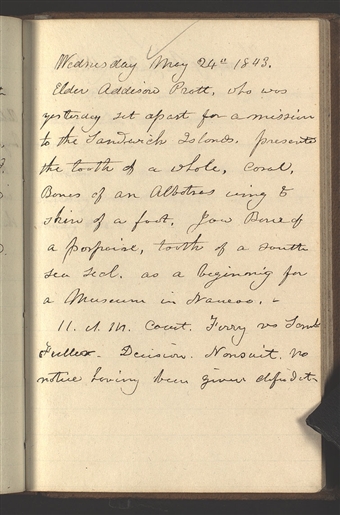 Wednesday May 24th 1843.
Elder Addison Pratt, who was
yesterday set apart for a mission
to the Sandwich Islands. presents
the tooth of a whale, coral,
Bones of an Albatros wing &
skin of a foot, Jaw Bone of
a porpoise, tooth of a south
sea seal. as a beginning for
a Museum in Nauvoo. -
11. A.M. Court. Ferry vs
Fullex. Decision. Nonsuit, no
notice having been given